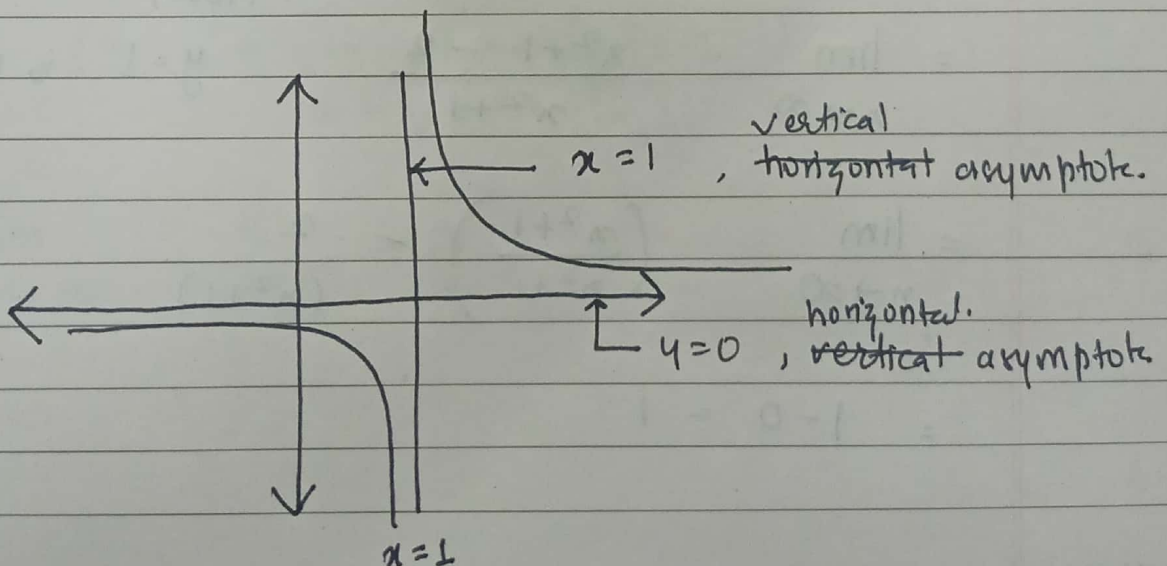 vertical
x = 1 , horizontal asymptote.
horizontal.
y = 0 , vertical asymptote
x = 1